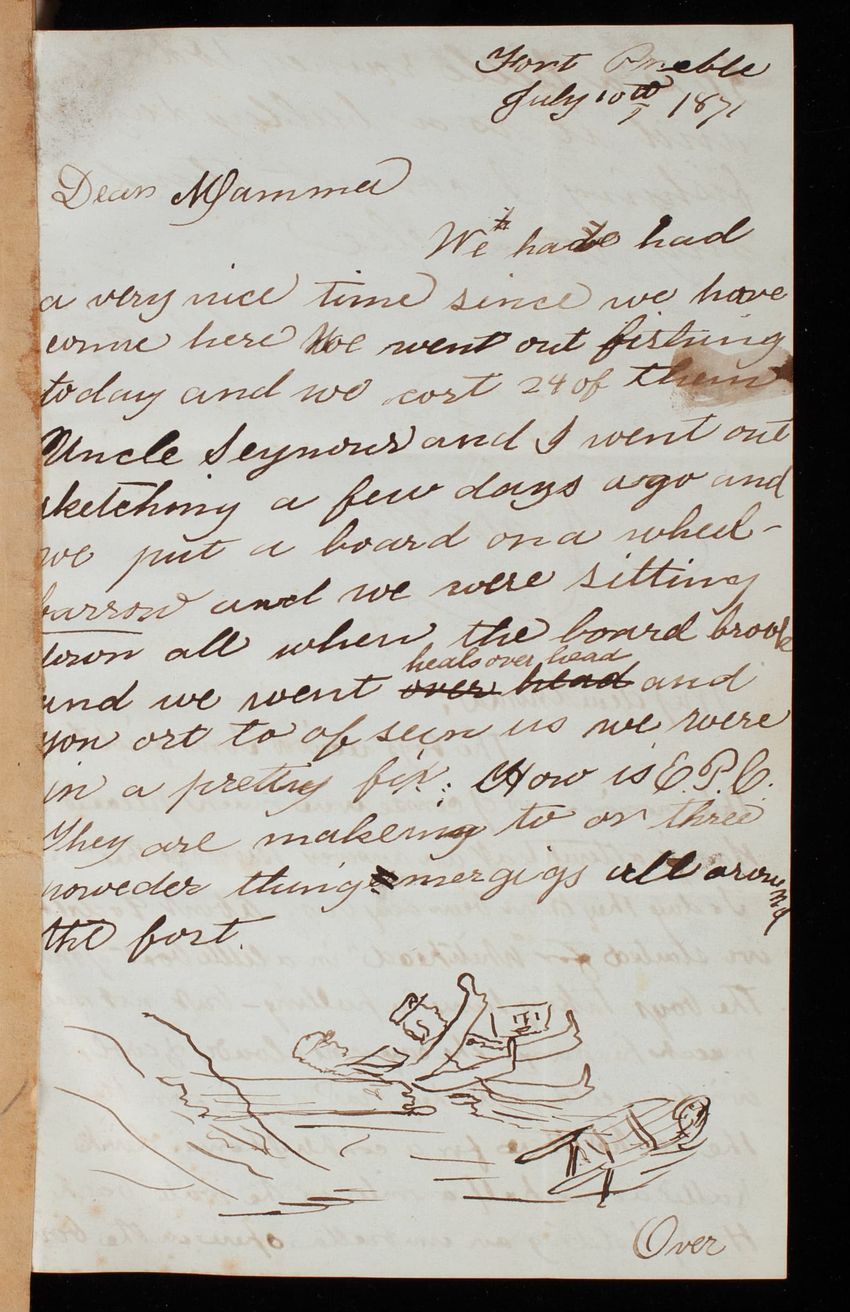 Fort Preble
July 10th 1871
Dear Mamma
We have had
a very nice time since we have
come here We went out fishing
today and we cort 24 of them
Uncle Seymour and I went out
sketching a few days ago and
we put a board on a wheel-
barrow and we were sitting
down all when the board brook
heals over head
and we went over head and
you ort to of seen us we were
in a pretty fix. How is E.P.C.
They are makeing to or three
poweder things mergigs all around
the fort.
Over